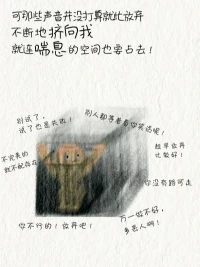 可那些声音并没打算就此放弃
不断地挤向我
就连喘息的空间也要占去！
别试了，
试了也是失败！
别人都等着看你笑话呢！
不完美的
就不配存在
趁早放弃
比较好！
你没有路可走
你不行的！放弃吧！
万一做不好，
多丢人啊！